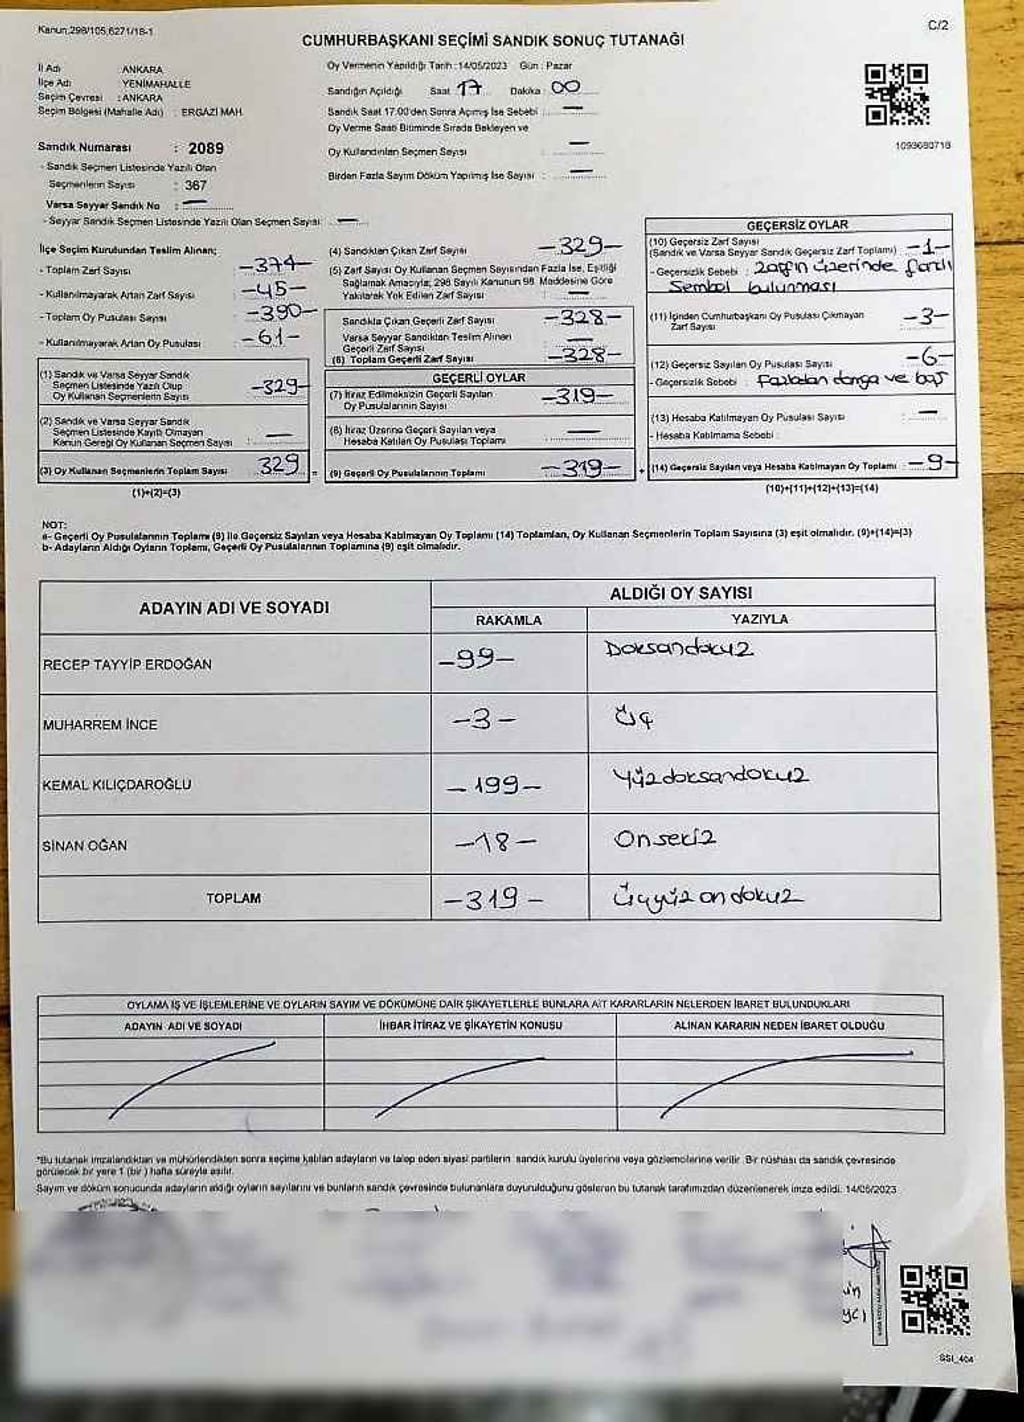 Kanun:298/105,6271/18-1
C/2
CUMHURBAŞKANI SEÇİMİ SANDIK SONUÇ TUTANAĞI
İl Adı ANKARA
İlçe Adı YENİMAHALLE
Seçim Çevresi : ANKARA
Seçim Bölgesi (Mahalle Adı) : ERGAZİ MAH.
Sandık Numarası : 2089
- Sandık Seçmen Listesinde Yazılı Olan
Seçmenlerin Sayısı : 367
Varsa Seyyar Sandık No : —
- Seyyar Sandık Seçmen Listesinde Yazılı Olan Seçmen Sayısı: —
Oy Vermenin Yapıldığı Tarih :14/05/2023 Gün : Pazar
Sandığın Açıldığı Saat 17 Dakika 00
Sandık Saat 17.00'den Sonra Açılmış İse Sebebi : —
Oy Verme Saati Bitiminde Sırada Bekleyen ve
Oy Kullandırılan Seçmen Sayısı : —
Birden Fazla Sayım Döküm Yapılmış İse Sayısı : —
1093680718
İlçe Seçim Kurulundan Teslim Alınan;
- Toplam Zarf Sayısı -374-
- Kullanılmayarak Artan Zarf Sayısı -45-
- Toplam Oy Pusulası Sayısı -390-
- Kullanılmayarak Artan Oy Pusulası -61-
(1) Sandık ve Varsa Seyyar Sandık
Seçmen Listesinde Yazılı Olup
Oy Kullanan Seçmenlerin Sayısı -329-
(2) Sandık ve Varsa Seyyar Sandık
Seçmen Listesinde Kayıtlı Olmayan
Kanun Gereği Oy Kullanan Seçmen Sayısı : —
(3) Oy Kullanan Seçmenlerin Toplam Sayısı 329 =
(1)+(2)=(3)
(4) Sandıktan Çıkan Zarf Sayısı -329-
(5) Zarf Sayısı Oy Kullanan Seçmen Sayısından Fazla İse, Eşitliği
Sağlamak Amacıyla; 298 Sayılı Kanunun 98. Maddesine Göre
Yakılarak Yok Edilen Zarf Sayısı : —
Sandıkta Çıkan Geçerli Zarf Sayısı -328-
Varsa Seyyar Sandıktan Teslim Alınan
Geçerli Zarf Sayısı —
(6) Toplam Geçerli Zarf Sayısı -328-
GEÇERLİ OYLAR
(7) İtiraz Edilmeksizin Geçerli Sayılan
Oy Pusulalarının Sayısı -319-
(8) İtiraz Üzerine Geçerli Sayılan veya
Hesaba Katılan Oy Pusulası Toplamı : —
(9) Geçerli Oy Pusulalarının Toplamı -319- +
GEÇERSİZ OYLAR
(10) Geçersiz Zarf Sayısı
(Sandık ve Varsa Seyyar Sandık Geçersiz Zarf Toplamı) -1-
- Geçersizlik Sebebi : Zarfın üzerinde farklı
Sembol bulunması
(11) İçinden Cumhurbaşkanı Oy Pusulası Çıkmayan
Zarf Sayısı -3-
(12) Geçersiz Sayılan Oy Pusulası Sayısı -6-
- Geçersizlik Sebebi : Fazladan damga ve boş
(13) Hesaba Katılmayan Oy Pusulası Sayısı : —
- Hesaba Katılmama Sebebi :
(14) Geçersiz Sayılan veya Hesaba Katılmayan Oy Toplamı : -9-
(10)+(11)+(12)+(13)=(14)
NOT:
a- Geçerli Oy Pusulalarının Toplamı (9) ile Geçersiz Sayılan veya Hesaba Katılmayan Oy Toplamı (14) Toplamları, Oy Kullanan Seçmenlerin Toplam Sayısına (3) eşit olmalıdır. (9)+(14)=(3)
b- Adayların Aldığı Oyların Toplamı, Geçerli Oy Pusulalarının Toplamına (9) eşit olmalıdır.
ADAYIN ADI VE SOYADI
ALDIĞI OY SAYISI
RAKAMLA YAZIYLA
RECEP TAYYİP ERDOĞAN -99- Doksandokuz
MUHARREM İNCE -3- Üç
KEMAL KILIÇDAROĞLU -199- Yüzdoksandokuz
SİNAN OĞAN -18- Onsekiz
TOPLAM -319- Üçyüzondokuz
OYLAMA İŞ VE İŞLEMLERİNE VE OYLARIN SAYIM VE DÖKÜMÜNE DAİR ŞİKAYETLERLE BUNLARA AİT KARARLARIN NELERDEN İBARET BULUNDUKLARI
ADAYIN ADI VE SOYADI İHBAR İTİRAZ VE ŞİKAYETİN KONUSU ALINAN KARARIN NEDEN İBARET OLDUĞU
*Bu tutanak imzalandıktan ve mühürlendikten sonra seçime katılan adayların ve talep eden siyasi partilerin sandık kurulu üyelerine veya gözlemcilerine verilir. Bir nüshası da sandık çevresinde
görülecek bir yere 1 (bir) hafta süreyle asılır.
Sayım ve döküm sonucunda adayların aldığı oyların sayılarını ve bunların sandık çevresinde bulunanlara duyurulduğunu gösteren bu tutanak tarafımızdan düzenlenerek imza edildi. 14/05/2023
SSİ_404